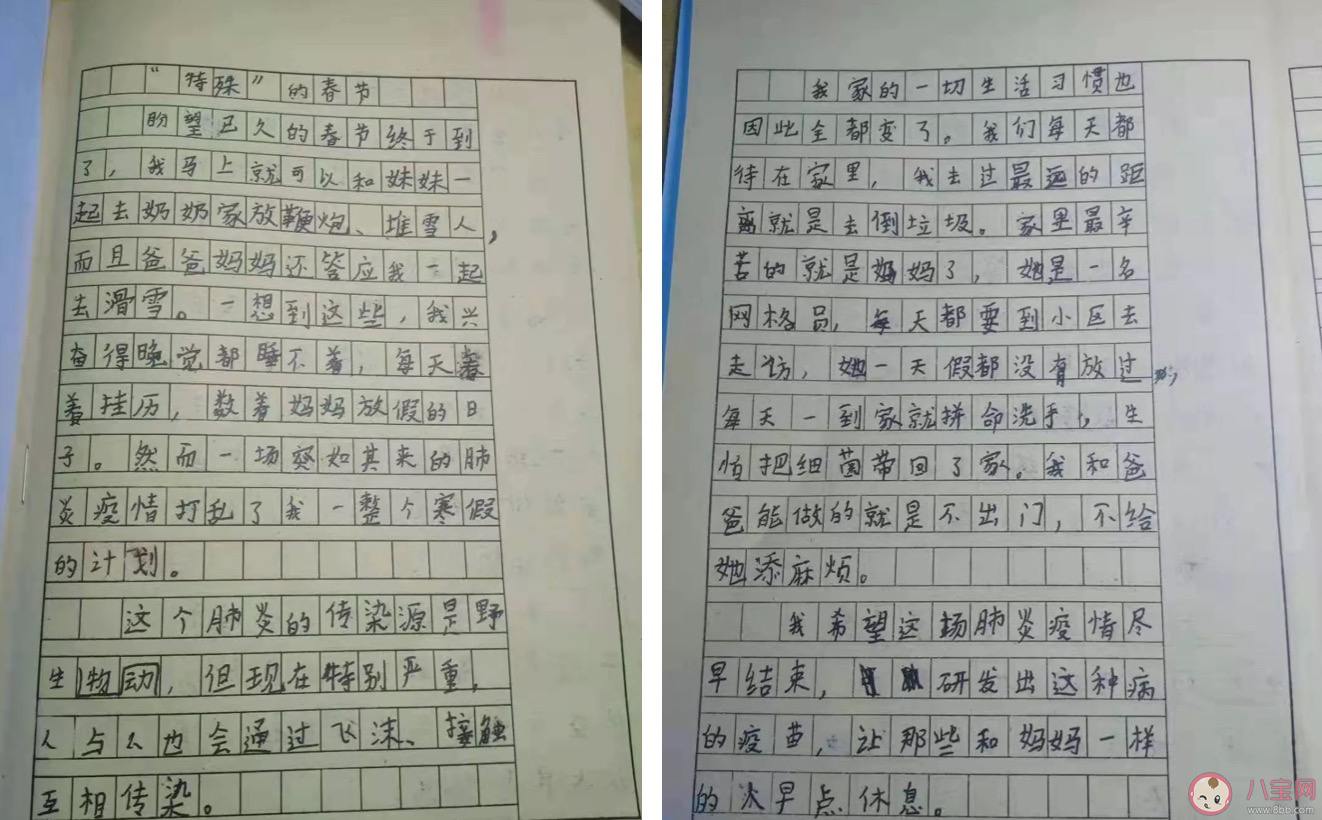 “特殊”的春节
盼望已久的春节终于到
了，我马上就可以和妹妹一
起去奶奶家放鞭炮、堆雪人，
而且爸爸妈妈还答应我一起
去滑雪。一想到这些，我兴
奋得晚觉都睡不着，每天
着挂历，数着妈妈放假的日
子。然而一场突如其来的肺
炎疫情打乱了我一整个寒假
的计划。
这个肺炎的传染源是野
生物动，但现在特别严重，
人与人也会通过飞沫、接触
互相传染。
我家的一切生活习惯也
因此全都变了。我们每天都
待在家里，我去过最远的距
离就是去倒垃圾。家里最辛
苦的就是妈妈了，她是一名
网格员，每天都要到小区去
走访，她一天假都没有放过，
每天一到家就拼命洗手，生
怕把细菌带回了家。我和爸
爸能做的就是不出门，不给
她添麻烦。
我希望这场肺炎疫情尽
早结束，研发出这种病
的疫苗，让那些和妈妈一样
的人早点休息。
八宝网
www.8bb.com